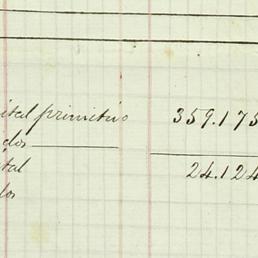 ital primitivo 359.175
dos
ital 24.124
los